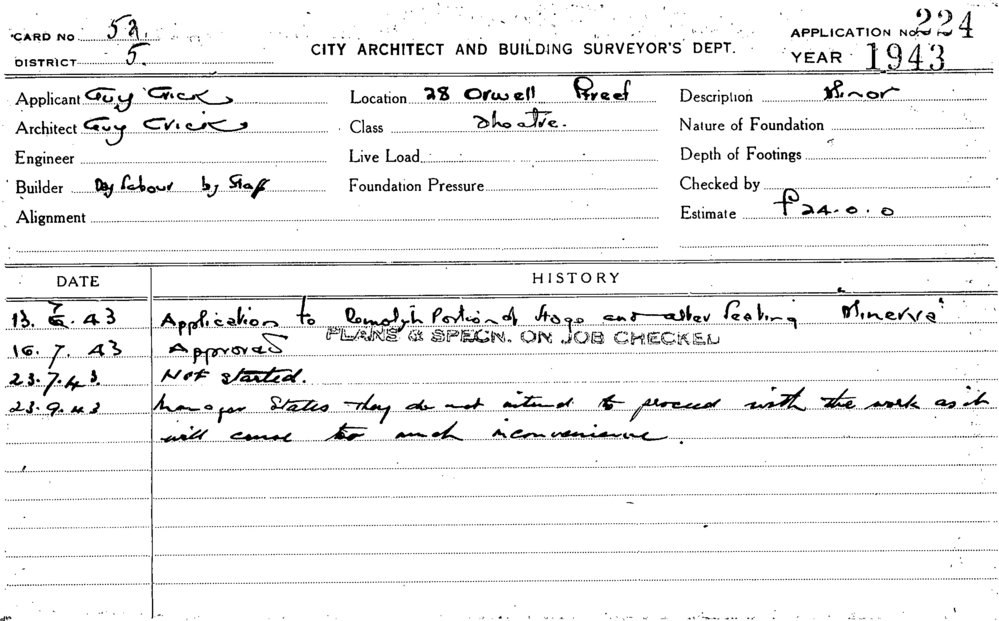 CARD No 52.
DISTRICT 5.
CITY ARCHITECT AND BUILDING SURVEYOR'S DEPT.
APPLICATION No. 224
YEAR 1943
Applicant Guy Crick
Location 28 Orwell Street
Description Minor
Architect Guy Crick
Class Theatre.
Nature of Foundation
Engineer
Live Load
Depth of Footings
Builder Day Labour by Staff
Foundation Pressure
Checked by
Alignment
Estimate £24.0.0
DATE
HISTORY
13. 7. 43 Application to Demolish Portion of Stage and alter Seating 'Minerva'
PLANS & SPECN. ON JOB CHECKED
16. 7. 43 Approved
23.7.43. Not started.
23.9.43 Manager States they do not intend to proceed with the work as it
will cause too much inconvenience.